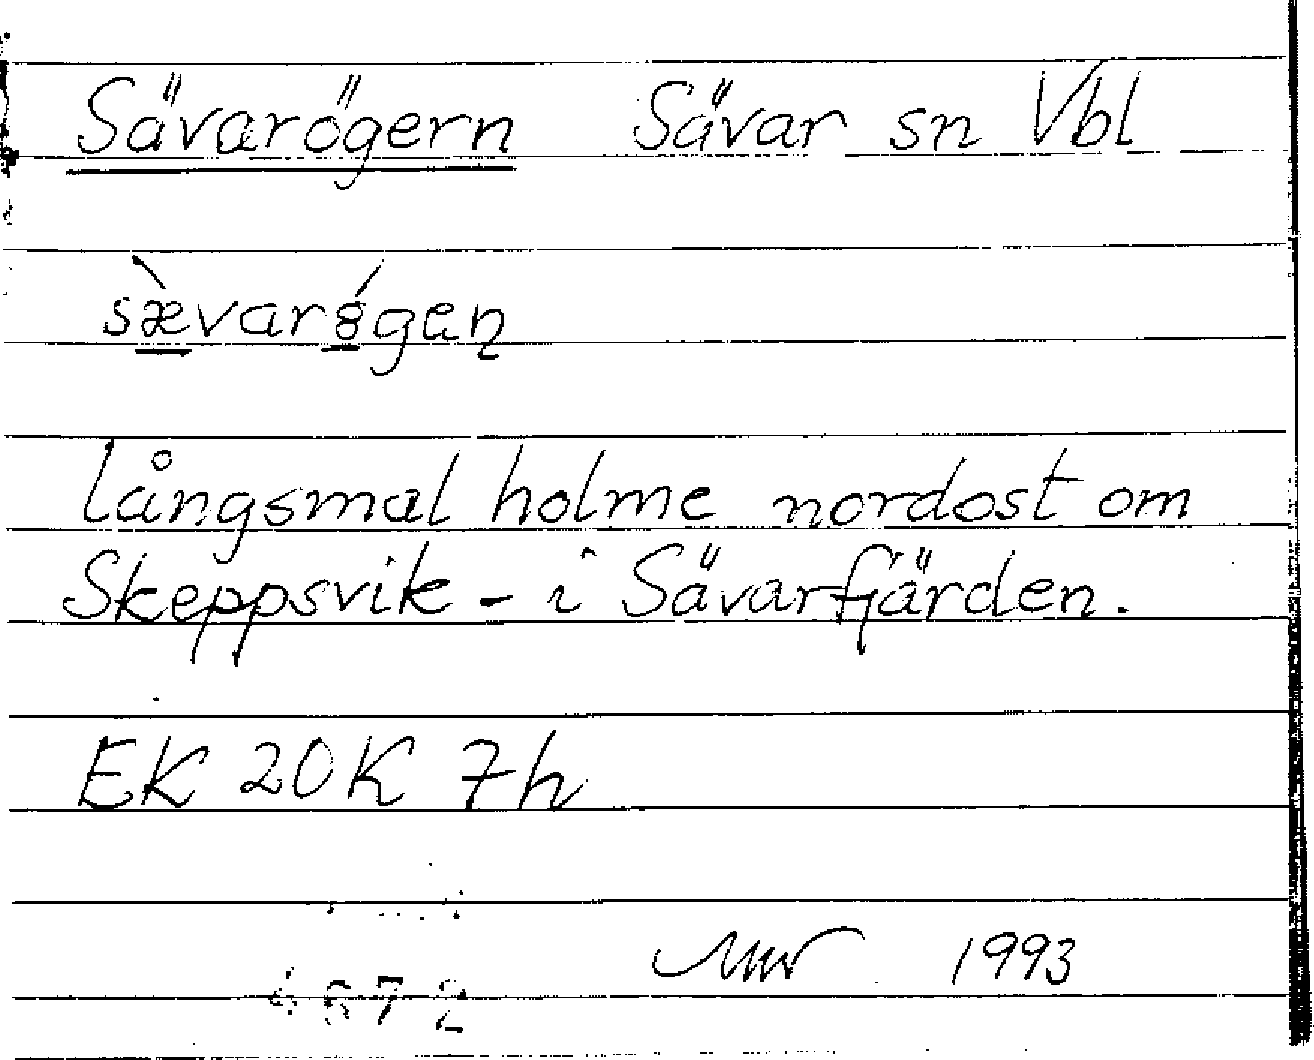 Sävarögern Sävar sn Vbl
sæ̀varǿgaɳ
långsmal holme nordost om
Skeppsvik - i Sävarfjärden.
EK 20K 7h
1993